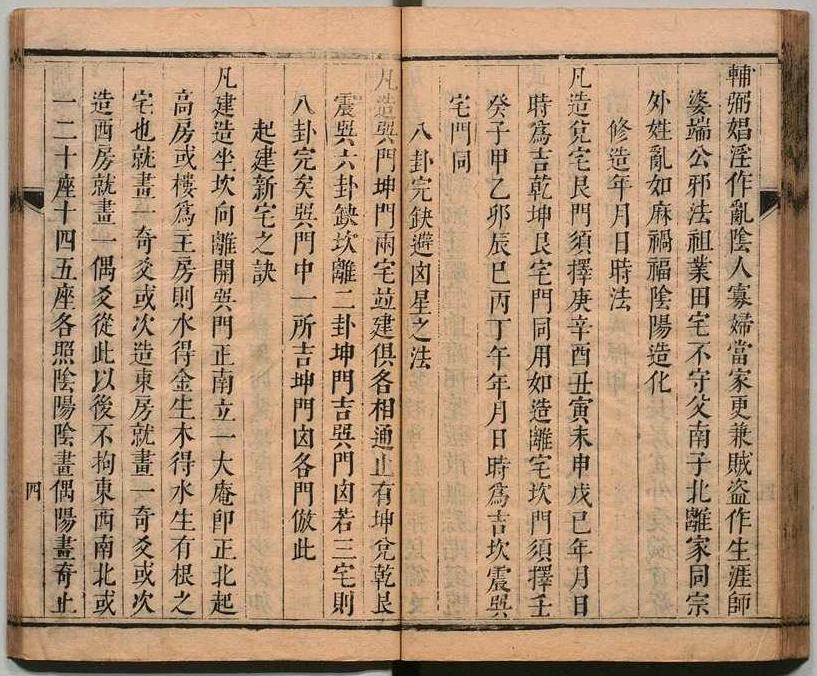 輔弼娼淫作亂陰人寡婦當家更兼賊盗作生涯師
婆端公邪法祖業田宅不守父南子北離家同宗
外姓亂如麻禍福陰陽造化
修造年月日時法
凡造兌宅艮門須擇庚辛酉丑寅未申戊巳年月日
時爲吉乾坤艮宅門同用如造離宅坎門須擇壬
癸子甲乙卯辰巳丙丁午年月日時爲吉坎震巽
宅門同
八卦完缺避凶星之法
凡造巽門坤門兩宅並建俱各相通止有坤兌乾艮
震巽六卦缺坎離二卦坤門吉巽門凶若三宅則
八卦完矣巽門中一所吉坤門凶各門倣此
起建新宅之訣
凡建造坐坎向離開巽門正南立一大庵卽正北起
高房或樓爲王房則水得金生木得水生有根之
宅也就畫一奇爻或次造東房就畫一奇爻或次
造西房就畫一偶爻從此以後不拘東西南北或
一二十座十四五座各照陰陽陰畫偶陽畫奇止
四